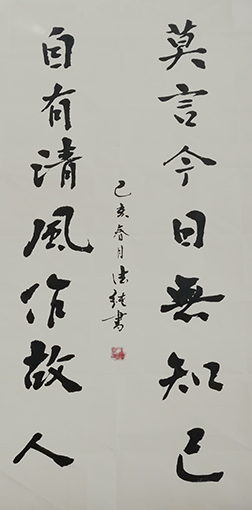 莫言今日無知己
自有清風作故人
己亥春月法純書